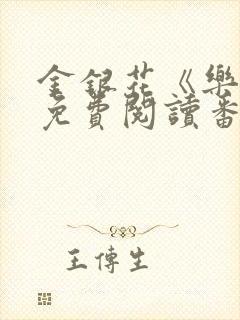 金銀花《樂
免費閱讀番
王傳生